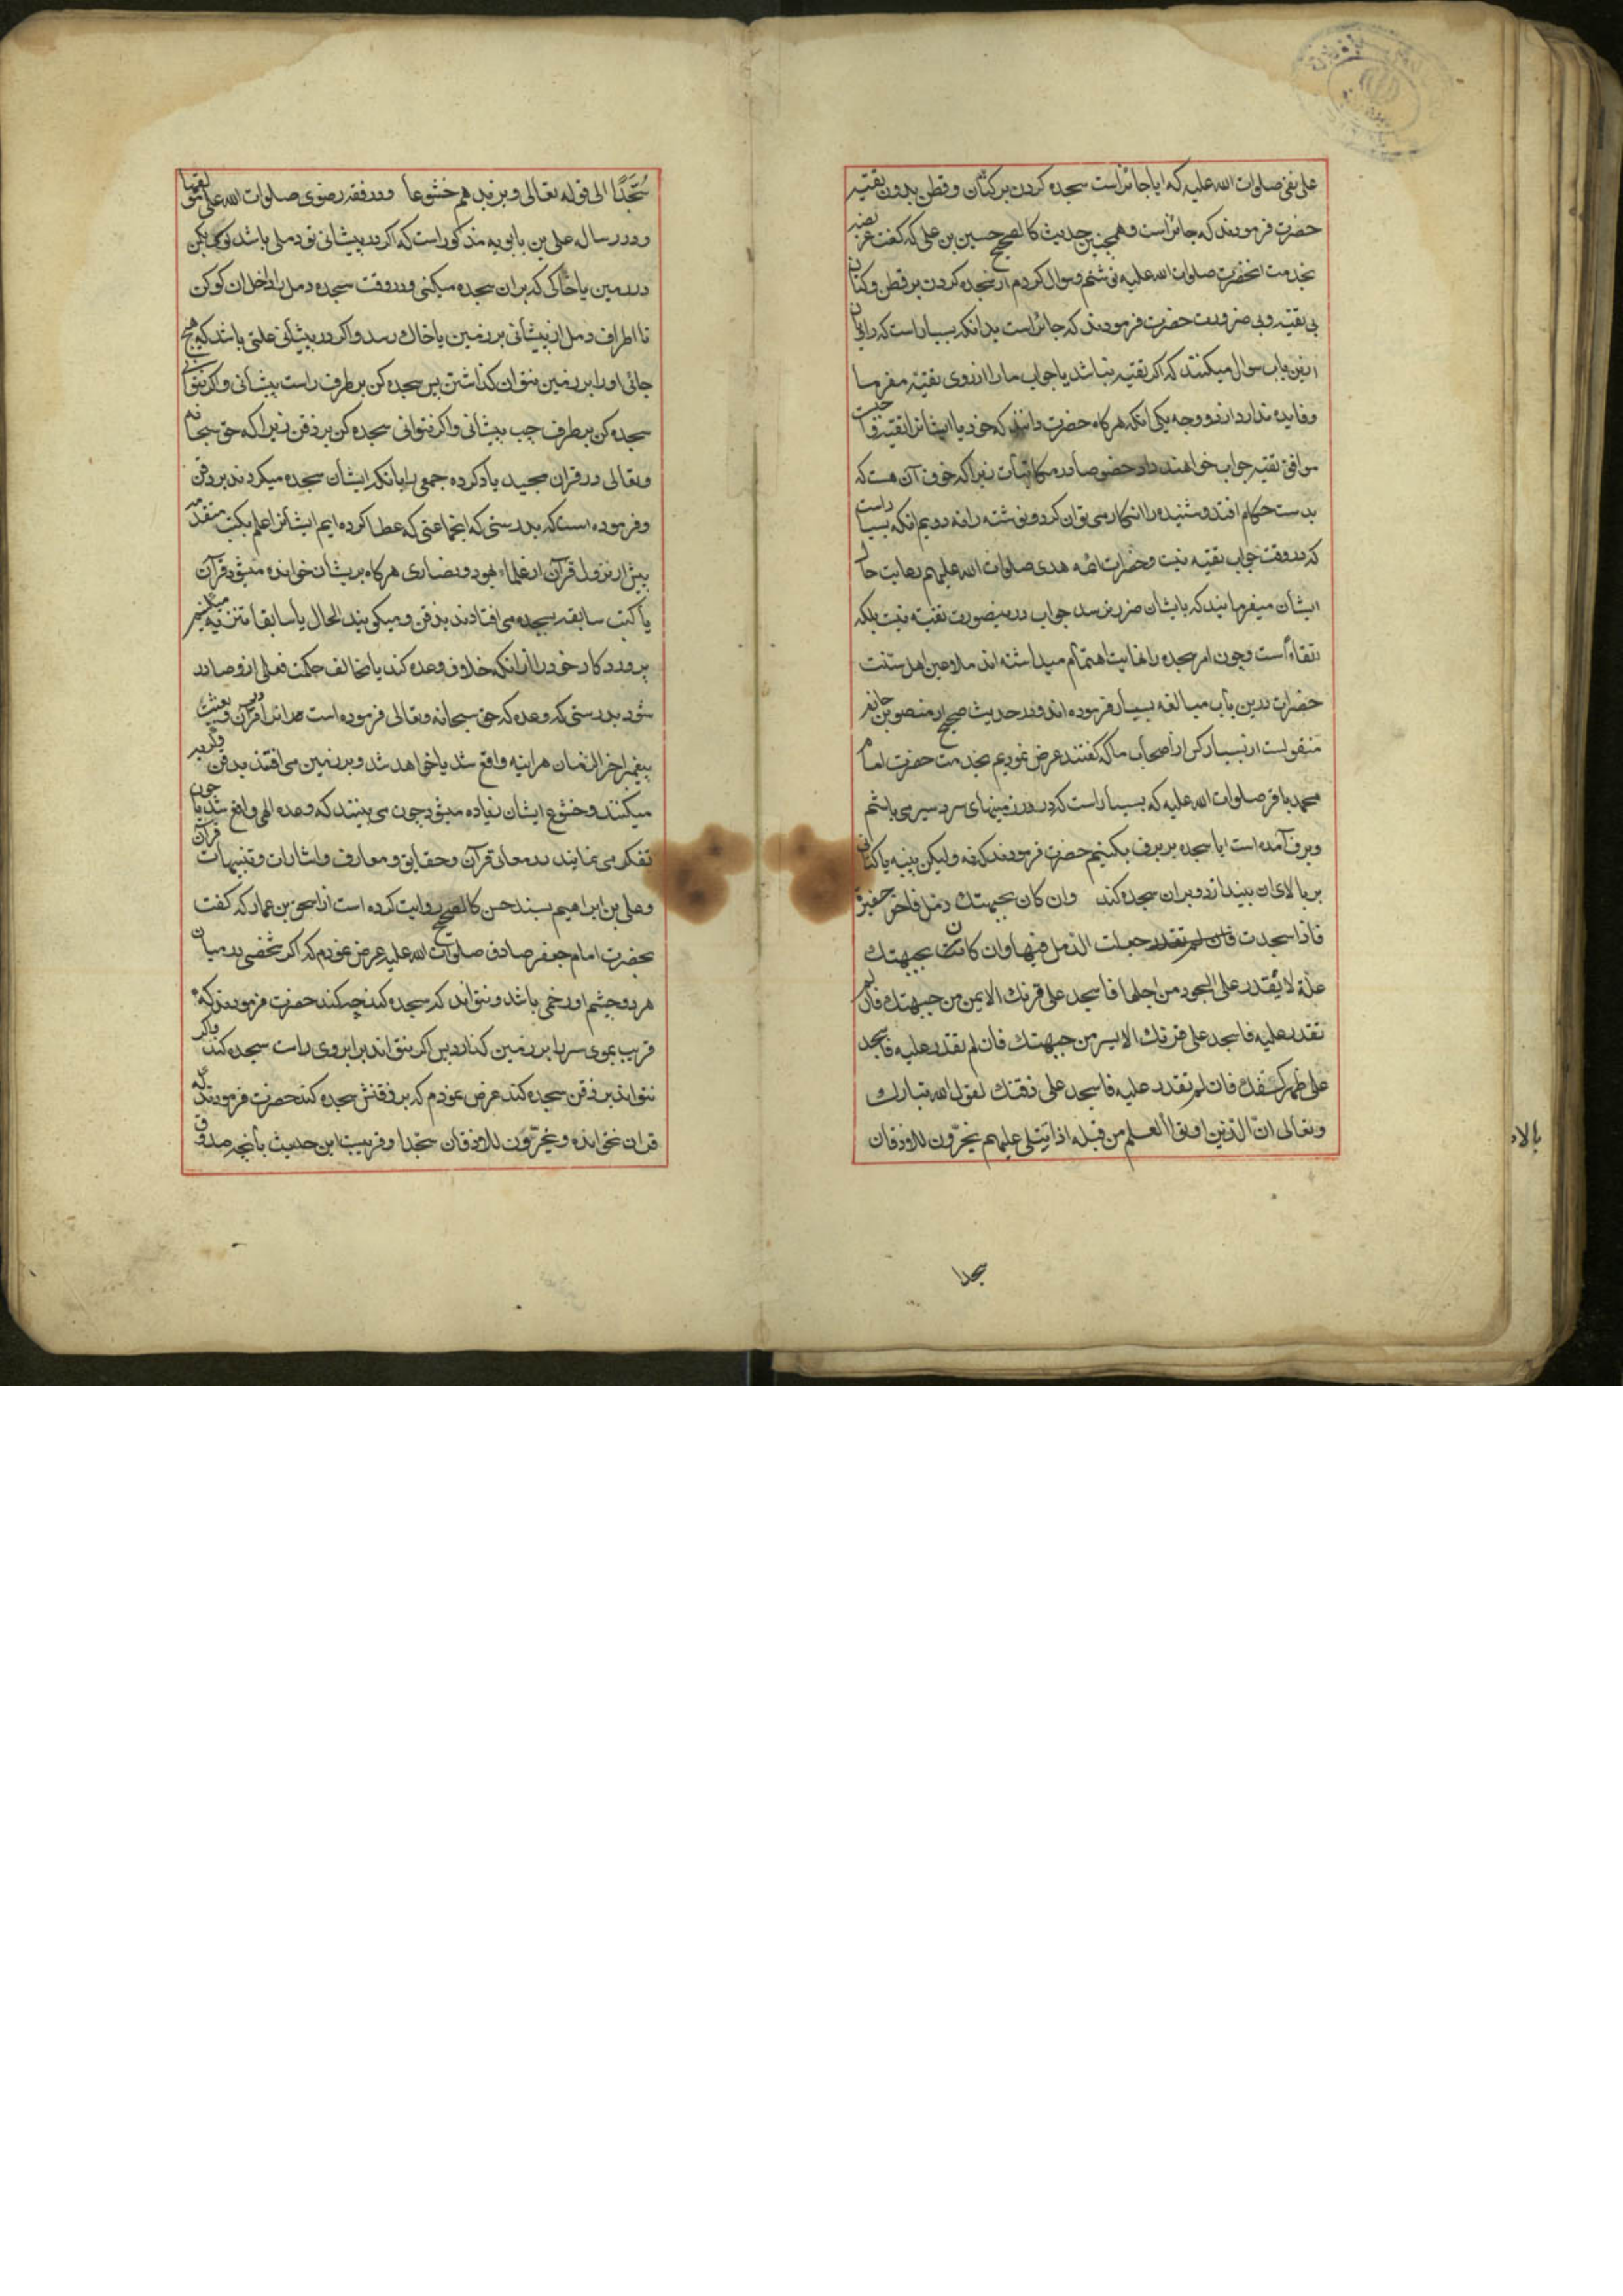 علی نقی صلوات الله علیه که ایا جائز است سجده کردن بر کتان و قطن بدون تقیه
حضرت فرمودند که جائز است و همچنین حدیث کالصحیح حسین بن علی که گفت عریضه
بخدمت انحضرت صلوات الله علیه نوشتم و سوال کردم از سجده کردن بر قطن و کتان
بی تقیه و بی ضرورت حضرت فرمودند که جائز است بدانکه بسیار است که راویان
ازین باب سوال میکنند که اکر تقیه نباشد یا جواب ما را از روی تقیه مفرما
و فایده ندارد از دو وجه یکی انکه هرکاه حضرت دانند که خود یا ایشانرا تقیه
موافق تقیه جواب خواهند داد خصوصا در مکاتبات زیرا که خوف آن هست که
بدست حکام افتد و شنیده را انکار می توان کرد و نوشته را نه دویم انکه بسیار است
که در وقت جواب تقیه نیست و حضرات ائمه هدی صلوات الله علیهم رعایت حال
ایشان میفرمایند که بایشان ضرر نرسد جواب درینصورت تقیه نیست بلکه
اتقاء است و چون امر سجده را نهایت اهتمام میداشته اند ملاعین اهل سنت
حضرات درین باب مبالغه بسیار فرموده اند و در حدیث صحیح از منصور بن حازم
منقولست از بسیار کس از اصحاب ما که گفتند عرض نمودیم بخدمت حضرت امام
محمد باقر صلوات الله علیه که بسیار است که در زمینهای سردسیر می باشم
و برف آمده است ایا سجده بر برف بکنیم حضرت فرمودند که نه ولیکن پنبه یا کتانی
بر بالای ان بیندازد و بران سجده کند وان کان بجبهتك دمل فاحفر حفیرة
فاذا سجدت جعلت الدمل فیها وان کانت بجبهتك
علة لا یقدر علی السجود من اجلها فاسجد علی قرنك الایمن من جبهتك فان لم
تقدر علیه فاسجد علی قرنك الایسر من جبهتك فان لم تقدر علیه فاسجد
علی ظهر کفك فان لم تقدر علیه فاسجد علی ذقنك لقول الله تبارك
وتعالی ان الذین اوتوا العلم من قبله اذا یتلی علیهم یخرون للاذقان
سجدا
سُجَّدًا الی قوله تعالی و یزیدهم خشوعا و در فقه رضوی صلوات الله علی
و در رساله علی بن بابویه مذکور است که اکر در پیشانی تو دملی باشد کوی بکن
در زمین یا خاکی که بران سجده میکنی و در وقت سجده دمل را داخل ان کو کن
تا اطراف دمل از پیشانی بر زمین یا خاك رسد و اکر در پیشانی علتی باشد که هیچ
جائی اورا بر زمین نتوان کذاشتن پس سجده کن بر طرف راست پیشانی و اکر نتوانی
سجده کن بر طرف چپ پیشانی و اکر نتوانی سجده کن بر ذقن زیرا که حق سبحانه
و تعالی در قران مجید یاد کرده جمعی را بانکه ایشان سجده میکردند بر ذقن
و فرموده است که بدرستی که انجماعتی که عطا کرده ایم ایشانرا علم بکتب متقدمه
پیش از نزول قرآن از علماء یهود و نصاری هرکاه بریشان خوانده میشود قرآن
یا کتب سابقه بسجده می افتادند بذقن و میکویند الحال یا سابقا تنزیه میکنیم
پروردکار خود را از انکه خلاف وعده کند یا مخالف حکمت فعلی ازو صادر
شود بدرستی که وعده که حق سبحانه و تعالی فرموده است
پیغمبر اخر الزمان هراینه واقع شد یا خواهد شد و بر زمین می افتند بذقن و کریه
میکنند و خشوع ایشان زیاده میشود چون می بینند که وعده الهی واقع شد یا چون
تفکر می نمایند در معانی قرآن و حقایق و معارف و اشارات و تنبیهات قرآن
و علی بن ابراهیم بسند حسن کالصحیح روایت کرده است از اسحق بن عمار که گفت
بحضرت امام جعفر صادق صلوات الله علیه عرض نمودم که اکر شخصی در میان
هر دو چشم او زخمی باشد و نتواند که سجده کند چه کند حضرت فرمودند که
قریب بموی سر را بر زمین کذارد پس اکر نتواند بر ابروی راست سجده کند و اکر
نتواند بر ذقن سجده کند عرض نمودم که بر ذقنش سجده کند حضرت فرمودند که
قران نخوانده و یخرون للاذقان سجدا و قریب باین حدیث بانچه صدوق
بالاء